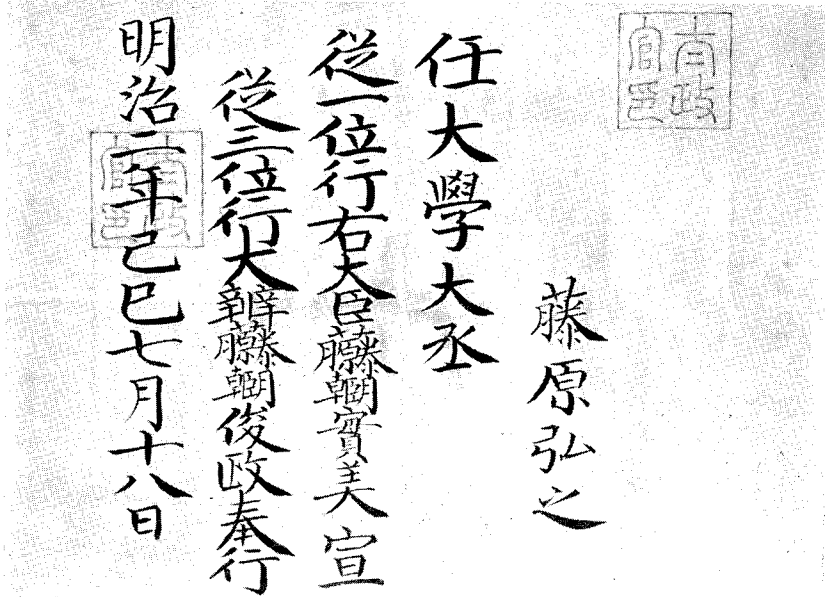 太政
官印
藤原弘之
任大學大丞
從一位行右大臣藤原朝臣實美宣
從三位行大辨藤原朝臣俊政奉行
明治二年己巳七月十八日
太政
官印